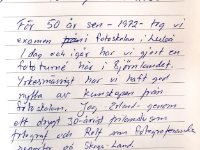 För 50 år sen - 1972 - tog vi
examen i fotoskolan i Luleå
I dag och igår har vi gjort en
fototurné här i Björnlandet.
Yrkesmässigt har vi haft god
nytta av kunskapen från
fotoskolan. Jag, Erland - genom
ett drygt 30-årigt frilandsom
fotograf och Rolf som fotograferande
reporter på Skogs-Land.